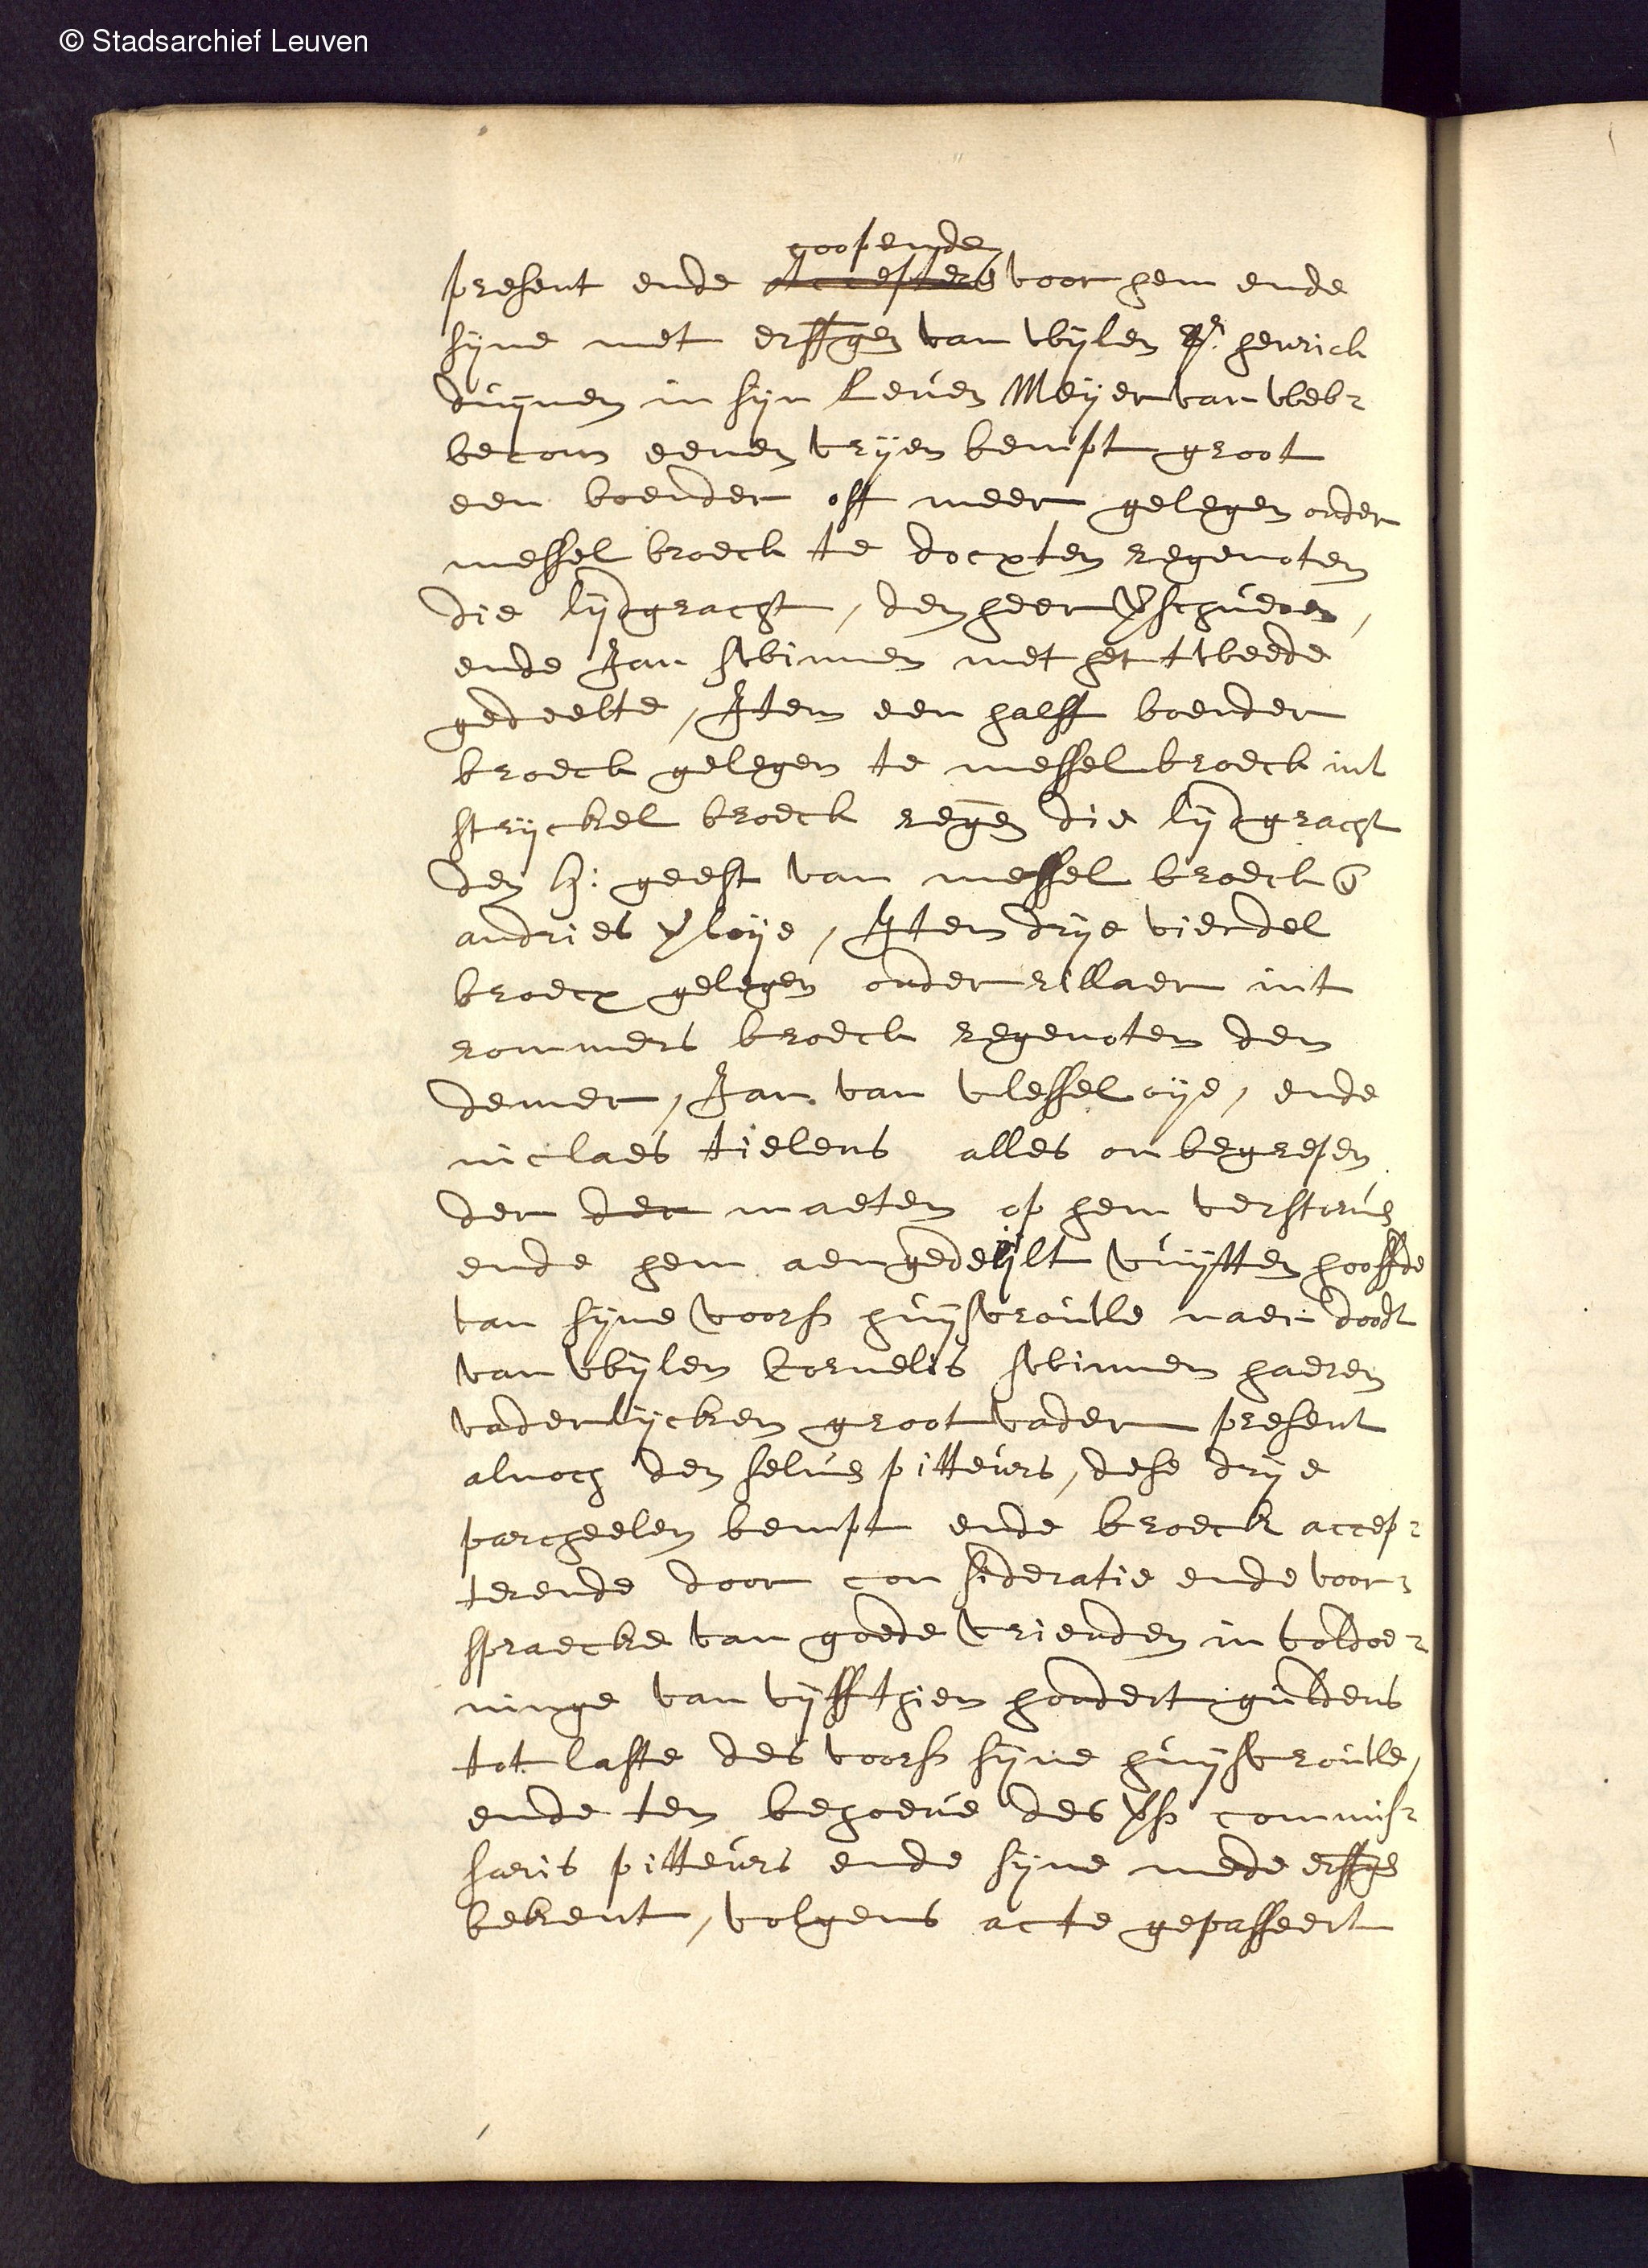 © Stadsarchief Leuven
coopende
present ende accepterē voor hem ende
syne met erffgen van wylen Sr. henrick
duynen in syn leven Meyer van web-
becom eenen vryen bempt groot
een boender oft meer gelegen onder
messel broeck te docxten regenoten
die lydgracht, den heer Vschueren,
ende Jan swinnen met het tweede
gedeelte, Item een halff boender
broeck gelegen te messelbroeck int
stryckel broeck regen die lydgracht
den H: geest van messel broeck en
andries Vloye, Item drye viendel
broecx gelegen onder rillaer int
rommers broeck regenoten den
demer, Jan van vlesseloye, ende
niclaes tielens alles onbegrepen
der der maeten op hem verstorven
ende hem aengedeylt vuytten hooffde
van syne voors huysvrouwe naer doodt
van wylen Cornelis swinnen haeren
vaderlycken grootvader present
alnoch den selven pitteurs, dese drye
parcheelen bempt ende broeck accep-
terende door consideratie ende voor-
spraecke van goede vrienden in voldoe-
ninge van vyffthien hondert guldens
tot laste des voors syne huysvrouwe,
ende ten behoeve des Vs commis-
saris pitteurs ende syne mede erffgen
bekent, volgens acte gepasseert